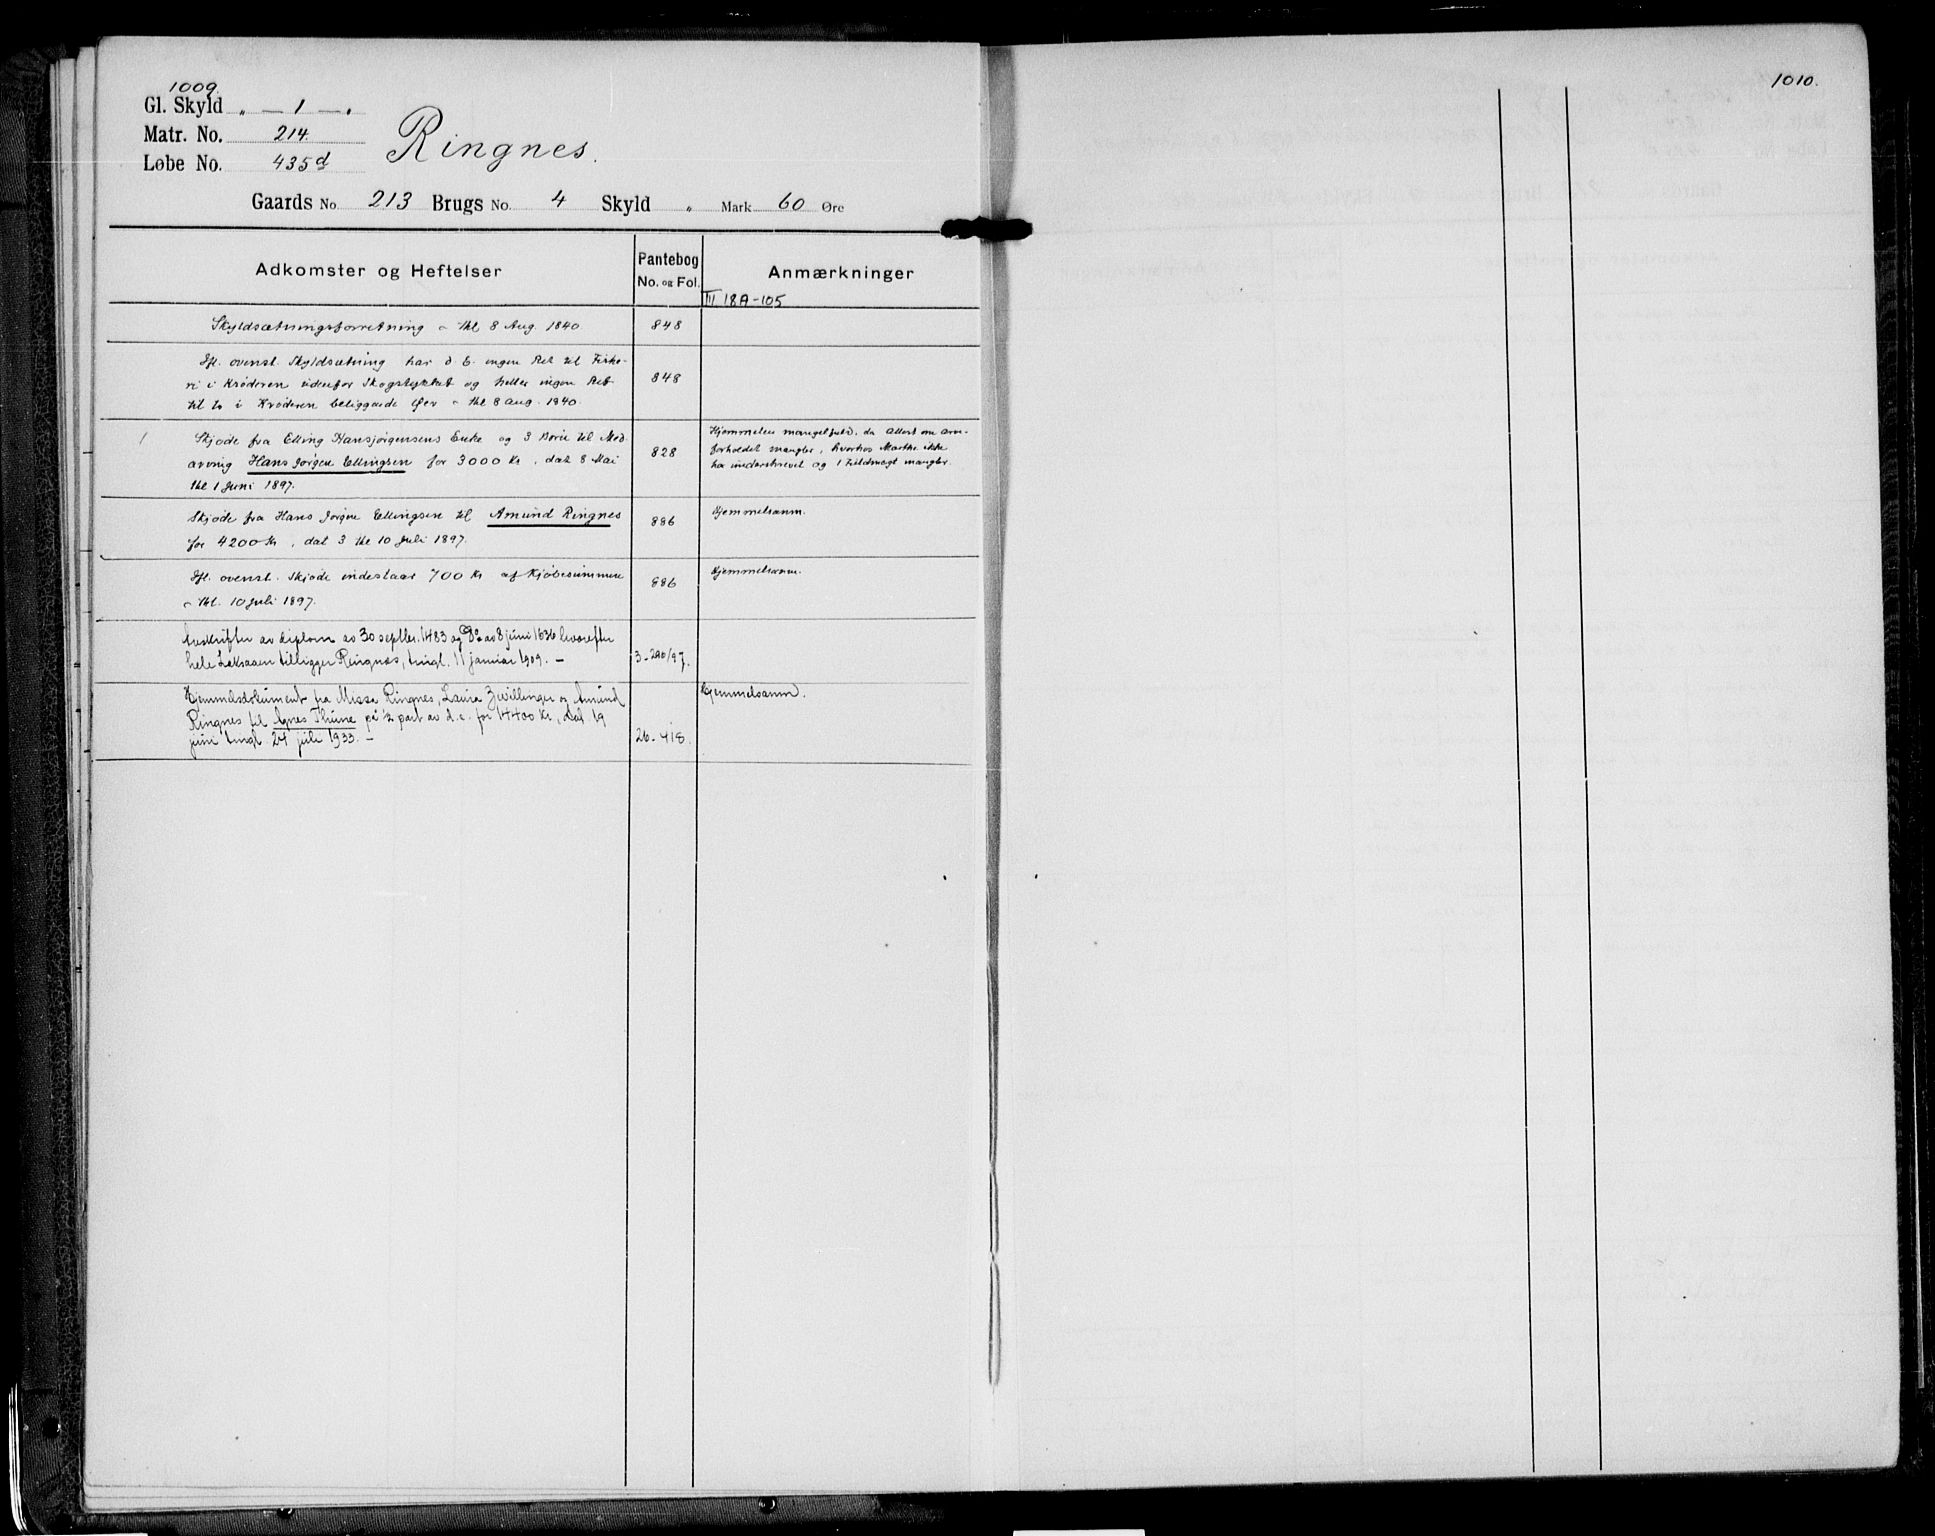 1009.
Gl. Skyld „ — 1 — „
Matr. No. 214.
Løbe No. 435d
Ringnes.
Gaards No. 213 Brugs No. 4 Skyld „ Mark 60 Øre
Adkomster og Heftelser
Pantebog
No. og Fol.
Anmærkninger
III 18A-105
Skyldsætningsforretning thl 8 Aug. 1840
848
Ifl. ovenst. Skyldsætning har d. E. ingen Ret til Fiske-
ri i Krøderen udenfor Skogstykket og heller ingen Ret
til to i Krøderen beliggende Øer thl 8 Aug. 1840.
848
1
Skjøde fra Elling Hansjørgensens Enke og 3 Børn til Med-
arving Hans Jørgen Ellingsen for 3000 Kr., dat 8 Mai
thl 1 Juni 1897.
828
Hjemmelen mangelfuld, da Attest om arve-
forholdet mangler, hvorhos Marthe ikke
har underskrevet og 1 Fuldmagt mangler.
Skjøde fra Hans Jørgen Ellingsen til Amund Ringnes
for 4200 Kr, dat 3 thl 10 Juli 1897.
886
Hjemmelsanm.
Ifl. ovenst. Skjøde indestaar 700 Kr af Kjøbesummen
thl. 10 Juli 1897.
886
Hjemmelsanm.
Avskrifter av diplom av 30 septbr. 1483 og do av 8 juni 1636 hvorefter
hele Laksaaen tilligger Ringnes, tingl. 11 januar 1909. —
3-290/97.
Hjemmelsdokument fra Missa Ringnes, Laura Zwillinger og Amund
Ringnes til Agnes Thune på ½ part av d.e. for 14400 Kr, dat 19
juni tingl. 24 juli 1933. —
26-418.
Hjemmelsanm.
1010.